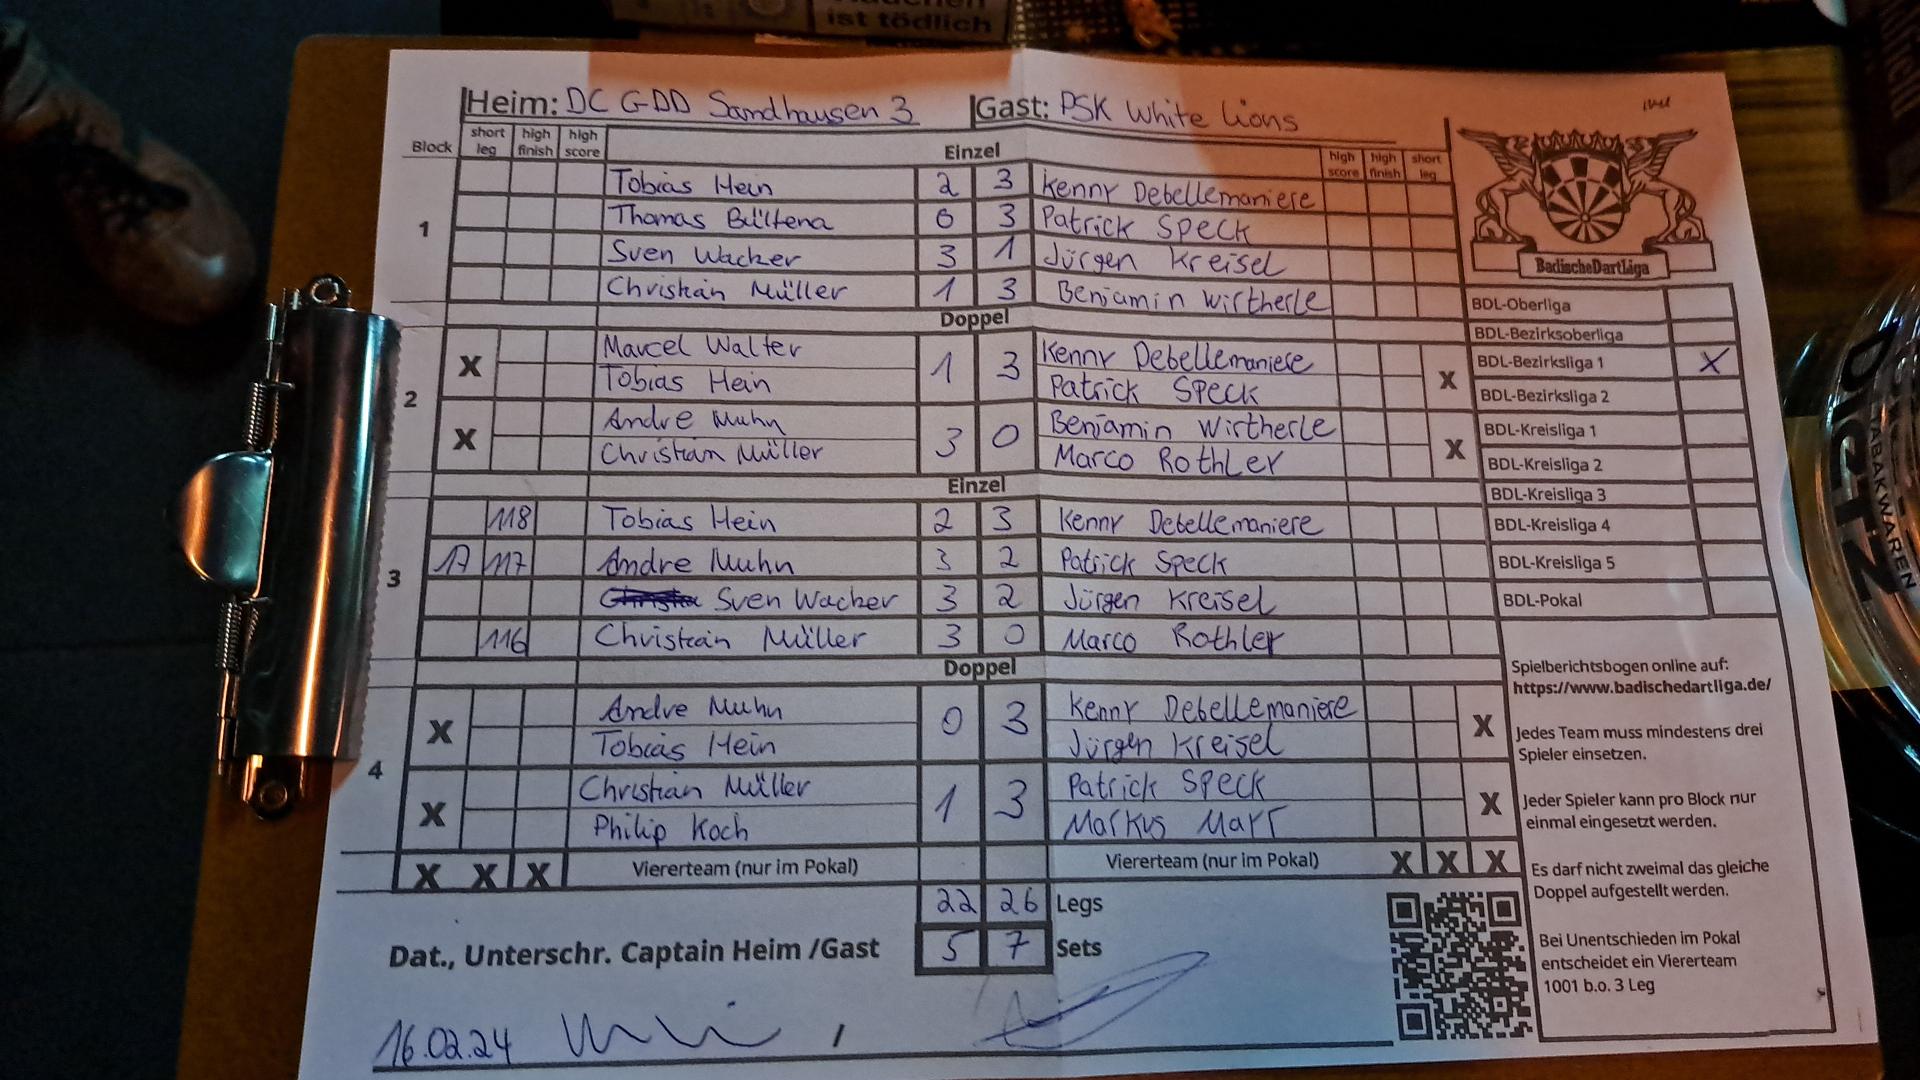 ist tödlich
Heim: DC GDD Sandhausen 3 Gast: PSK White Lions
Block short leg high finish high score Einzel high score high finish short leg
1
Tobias Hein 2 3 Kenny Debellemaniere
Thomas Bültena 0 3 Patrick Speck
Sven Wacker 3 1 Jürgen Kreisel
Christian Müller 1 3 Benjamin Wirtherle
Doppel
2
X Marcel Walter 1 3 Kenny Debellemaniere X
Tobias Hein Patrick Speck
X Andre Muhn 3 0 Benjamin Wirtherle X
Christian Müller Marco Rothler
Einzel
3
118 Tobias Hein 2 3 Kenny Debellemaniere
17 117 Andre Muhn 3 2 Patrick Speck
Sven Wacker 3 2 Jürgen Kreisel
116 Christian Müller 3 0 Marco Rothler
Doppel
4
X Andre Muhn 0 3 Kenny Debellemaniere X
Tobias Hein Jürgen Kreisel
X Christian Müller 1 3 Patrick Speck X
Philip Koch Markus Marr
X X X Viererteam (nur im Pokal) Viererteam (nur im Pokal) X X X
22 26 Legs
Dat., Unterschr. Captain Heim /Gast 5 7 Sets
16.02.24 /
BadischeDartLiga
BDL-Oberliga
BDL-Bezirksoberliga
BDL-Bezirksliga 1 X
BDL-Bezirksliga 2
BDL-Kreisliga 1
BDL-Kreisliga 2
BDL-Kreisliga 3
BDL-Kreisliga 4
BDL-Kreisliga 5
BDL-Pokal
Spielberichtsbogen online auf:
https://www.badischedartliga.de/
Jedes Team muss mindestens drei
Spieler einsetzen.
Jeder Spieler kann pro Block nur
einmal eingesetzt werden.
Es darf nicht zweimal das gleiche
Doppel aufgestellt werden.
Bei Unentschieden im Pokal
entscheidet ein Viererteam
1001 b.o. 3 Leg
TABAKWAREN